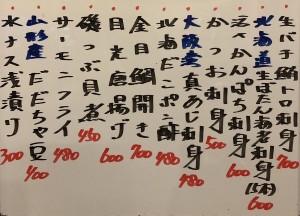 生バチ鮪トロ刺身 700
北海道生ぼたん海老刺身(5本) 600
活〆かんぱち刺身 600
かつお刺身 500
大阪産真あじ刺身 480
北海だこポン酢 480
金目鯛開き 700
目光唐揚げ 600
磯つぶ貝煮 450
サーモンフライ 480
山形産だだちゃ豆 400
水ナス浅漬け 300